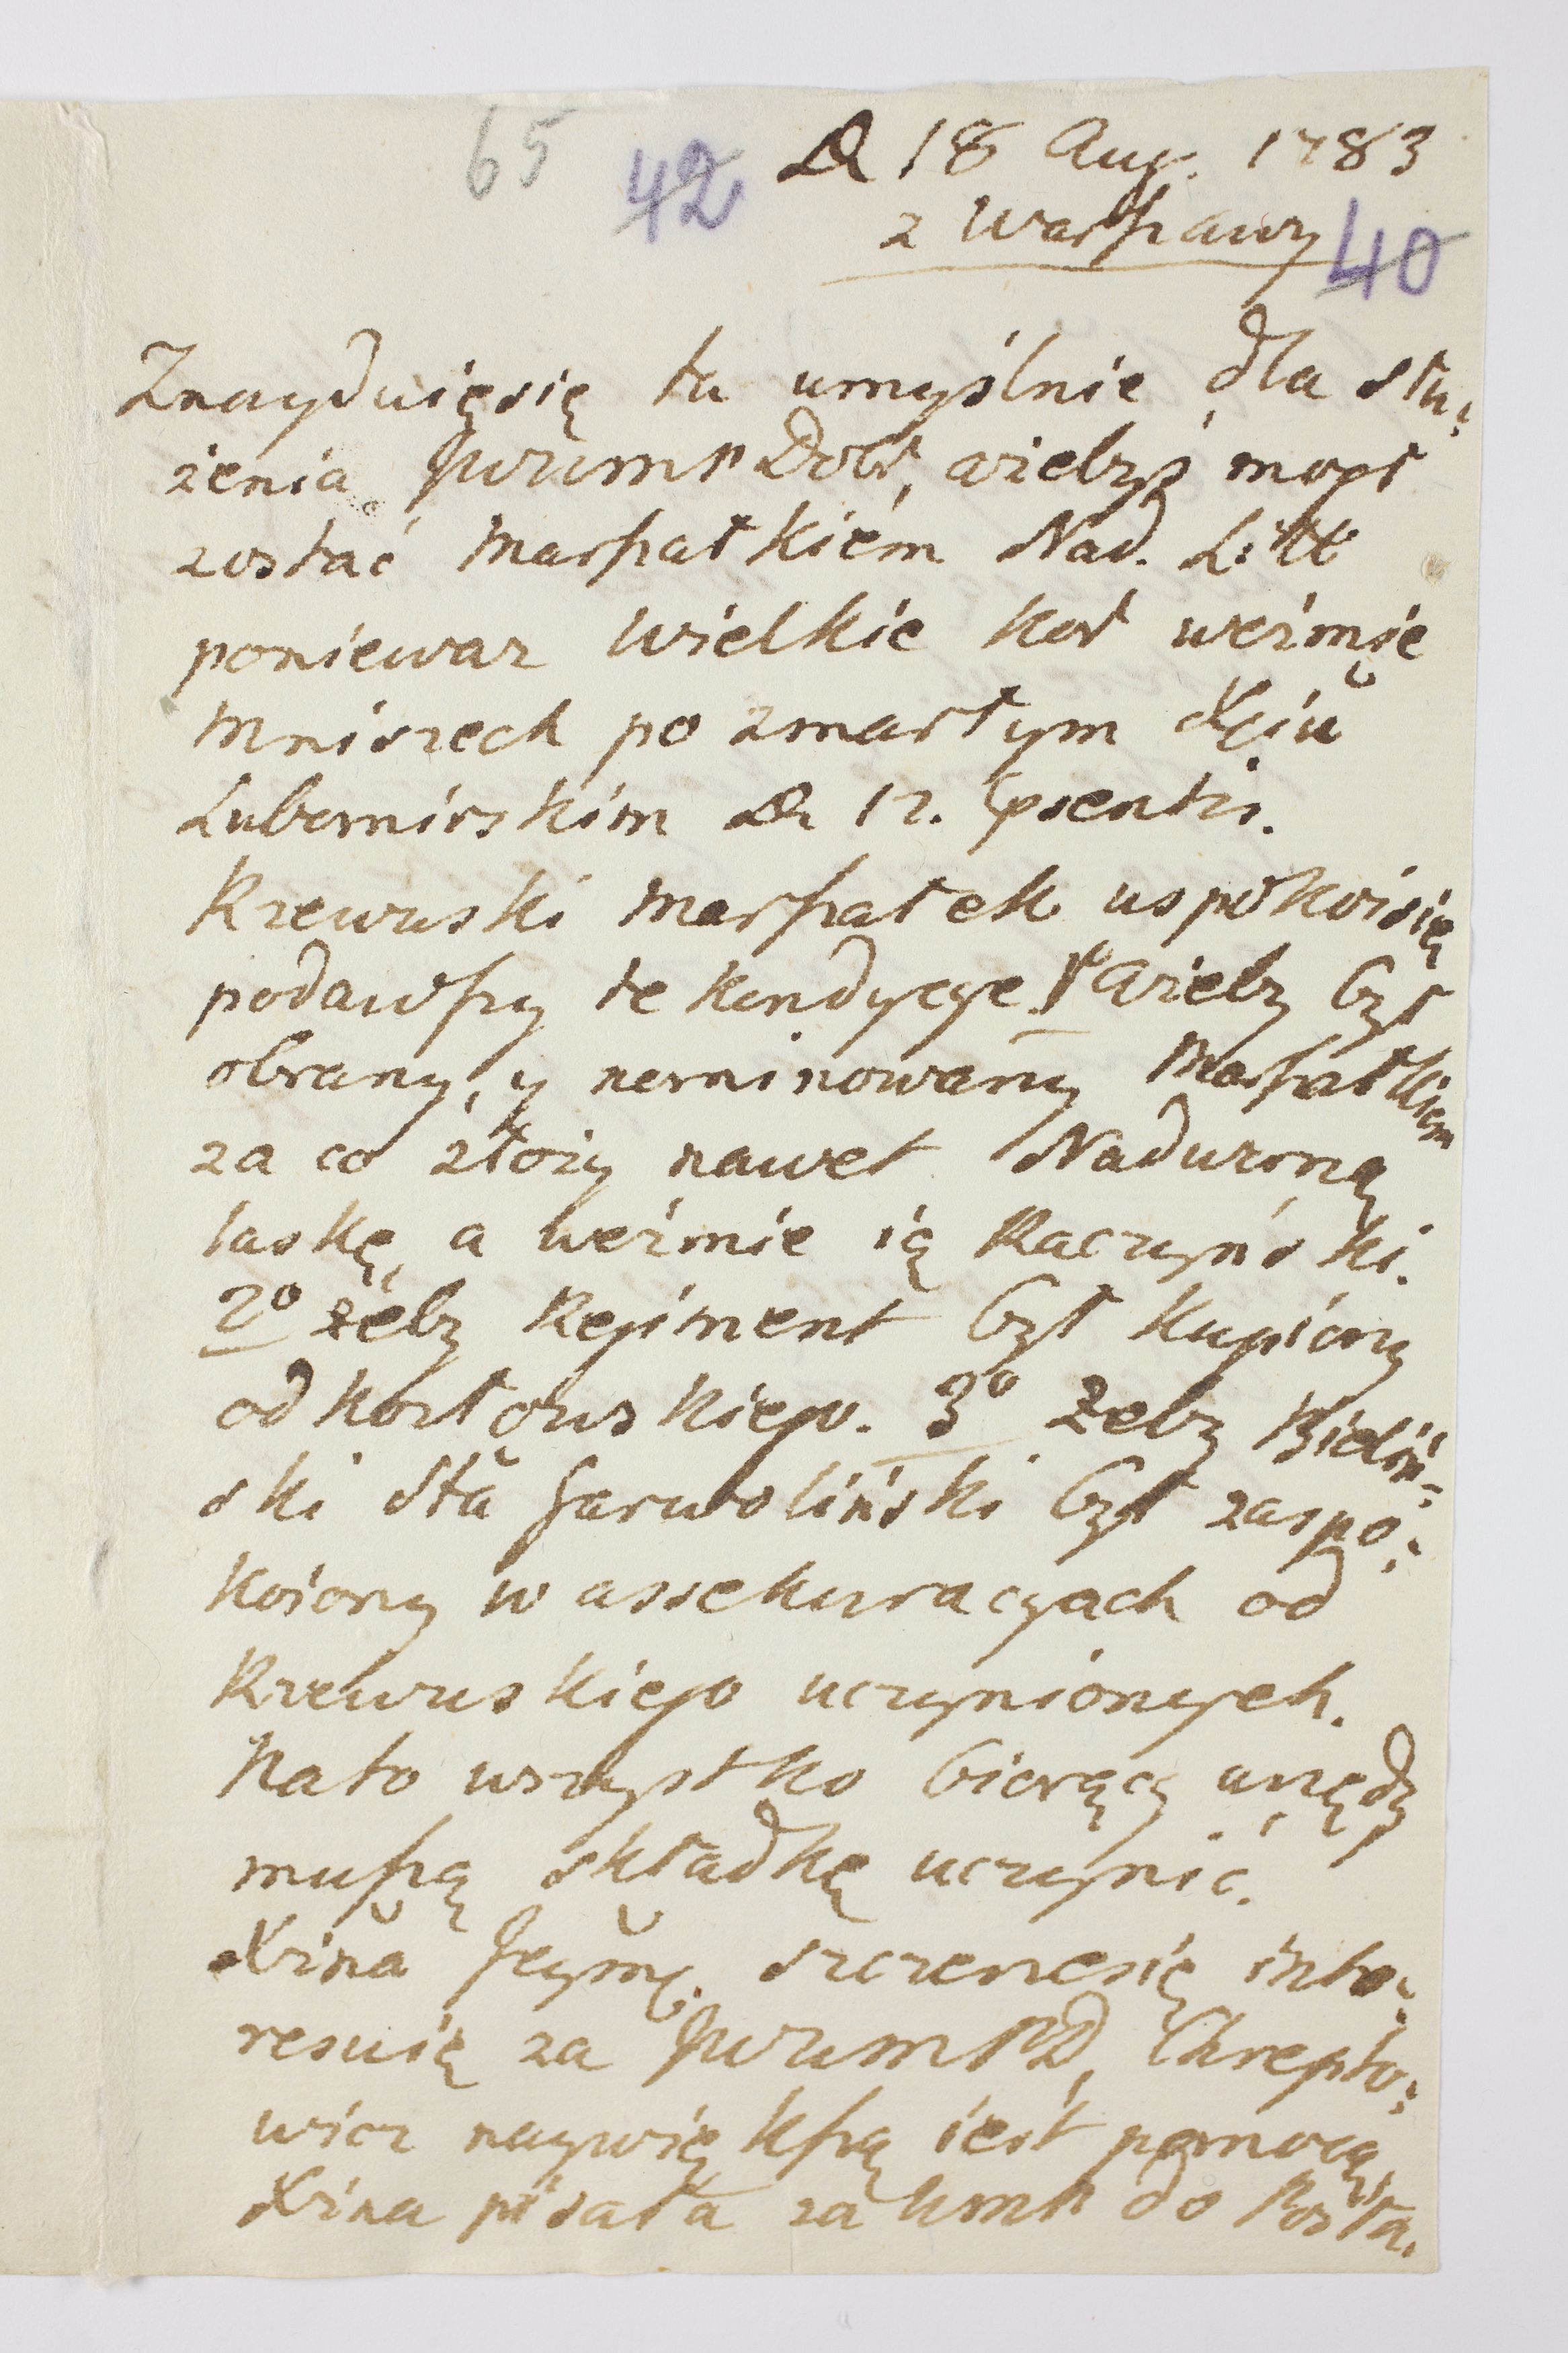 65 42 D 18 Aug. 1783
z Warszawy 40
Znayduięsię tu umyślnie dla słu:
żenia JWWMP Dobr, ażebyś mogł
zostać Marszałkiem Nad. Litt
ponieważ Wielkie Kor weźmie
Mniszech po zmarłym Xciu
Lubomirskim D 12. psentis.
Rzewuski Marszałek uspokoisię
podawszy te kondycye 1º Ażeby był
obrany, y nominowany Marszałkiem
za co złoży nawet Nadworną
laskę, a weźmie ią Raczyński.
2º żeby Regiment był kupiony
od Kozłowskiego. 3º Żeby Bieliń:
ski Sta Garwoliński był zaspo:
koiony w assekuracyach od
Rzewuskiego uczynionych.
Na to wszystko biorący urzędy
muszą składkę uczynić.
Xżna Jeymć. szczerzesię inte:
resuię za JWWMPD, Chrepto:
wicz naywiększą iest pomocą,
Xżna pisała za WMP do Posła.